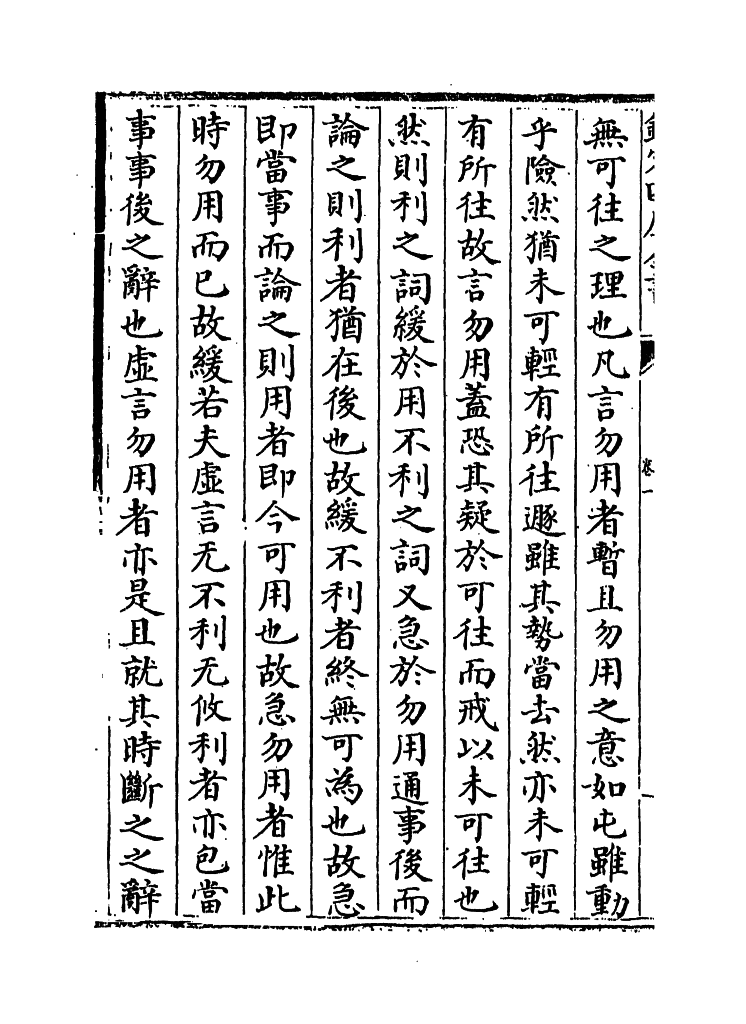 無可往之理也凡言勿用者暫且勿用之意如屯雖動
乎險然猶未可輕有所往遯雖其勢當去然亦未可輕
有所往故言勿用蓋恐其疑於可往而戒以未可往也
然則利之詞緩於用不利之詞又急於勿用通事後而
論之則利者猶在後也故緩不利者終無可為也故急
即當事而論之則用者即今可用也故急勿用者惟此
時勿用而已故緩若夫虛言无不利无攸利者亦包當
事事後之辭也虛言勿用者亦是且就其時斷之之辭
卷一